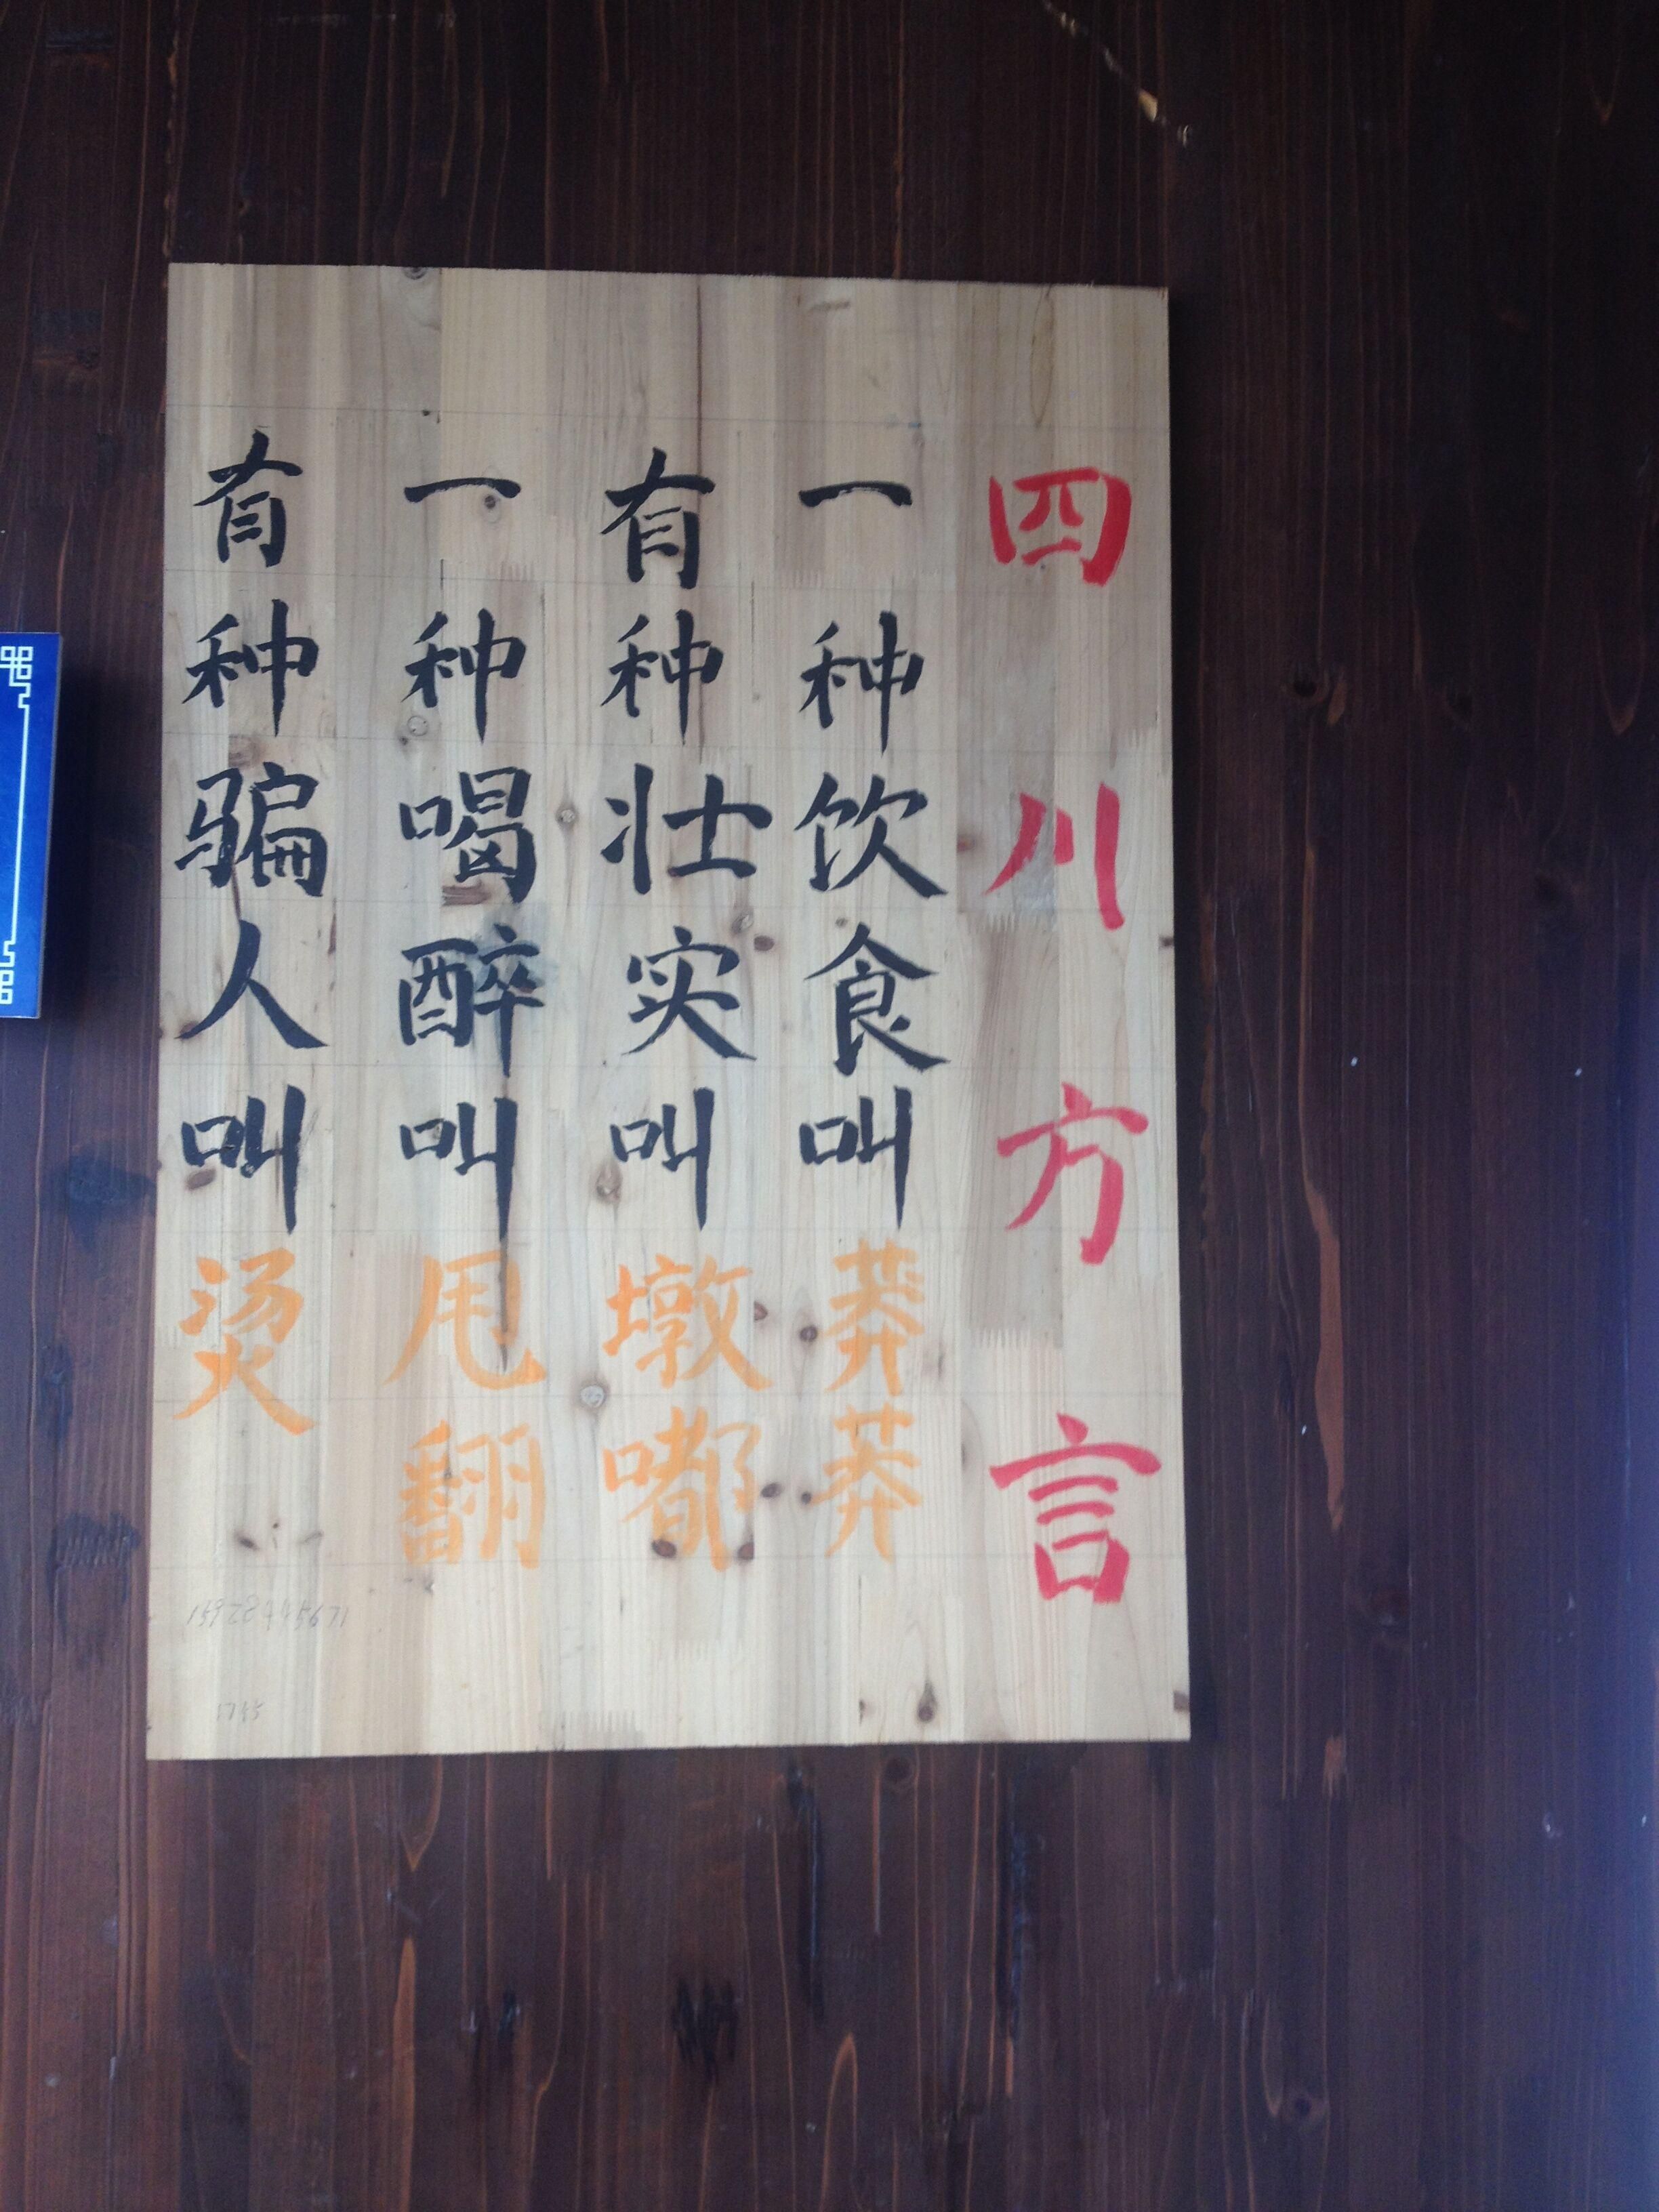 四川方言
一种饮食叫莽莽
有种壮实叫墩嘟
一种喝醉叫甩翻
有种骗人叫烫